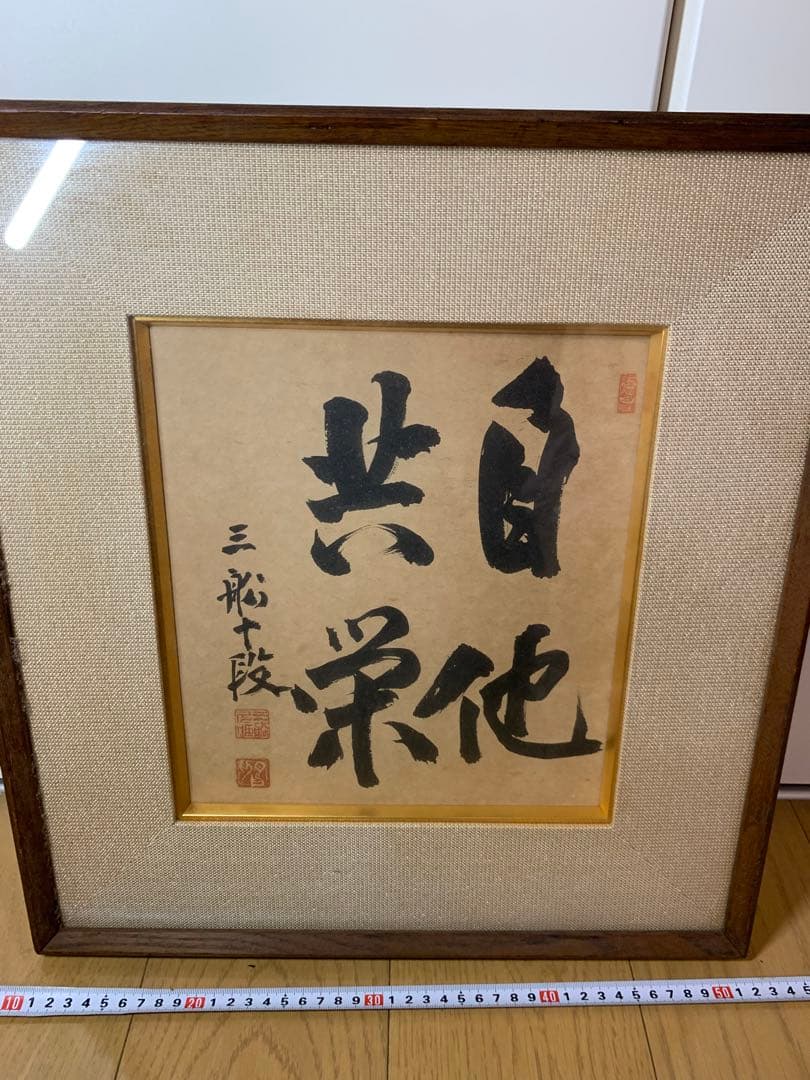 自他
共栄
三船十段
10 1 2 3 4 5 6 7 8 9 20 1 2 3 4 5 6 7 8 9 30 1 2 3 4 5 6 7 8 9 40 1 2 3 4 5 6 7 8 9 50 1 2 3 4 5